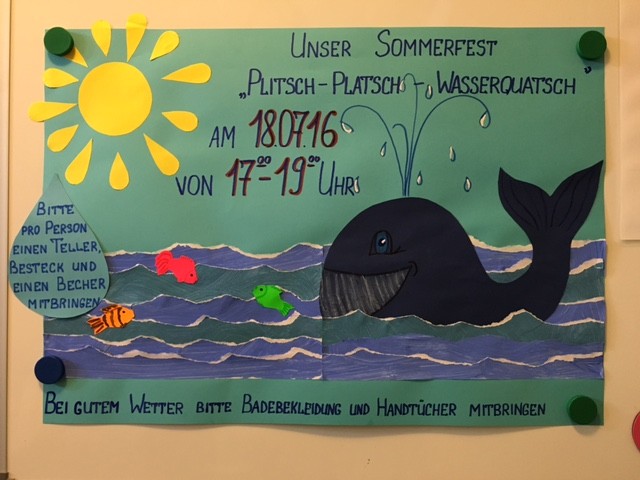 UNSER SOMMERFEST
„PLITSCH-PLATSCH-WASSERQUATSCH"
AM 18.07.16
VON 17⁰⁰-19⁰⁰ UHR
BITTE
PRO PERSON
EINEN TELLER,
BESTECK UND
EINEN BECHER
MITBRINGEN
BEI GUTEM WETTER BITTE BADEBEKLEIDUNG UND HANDTÜCHER MITBRINGEN